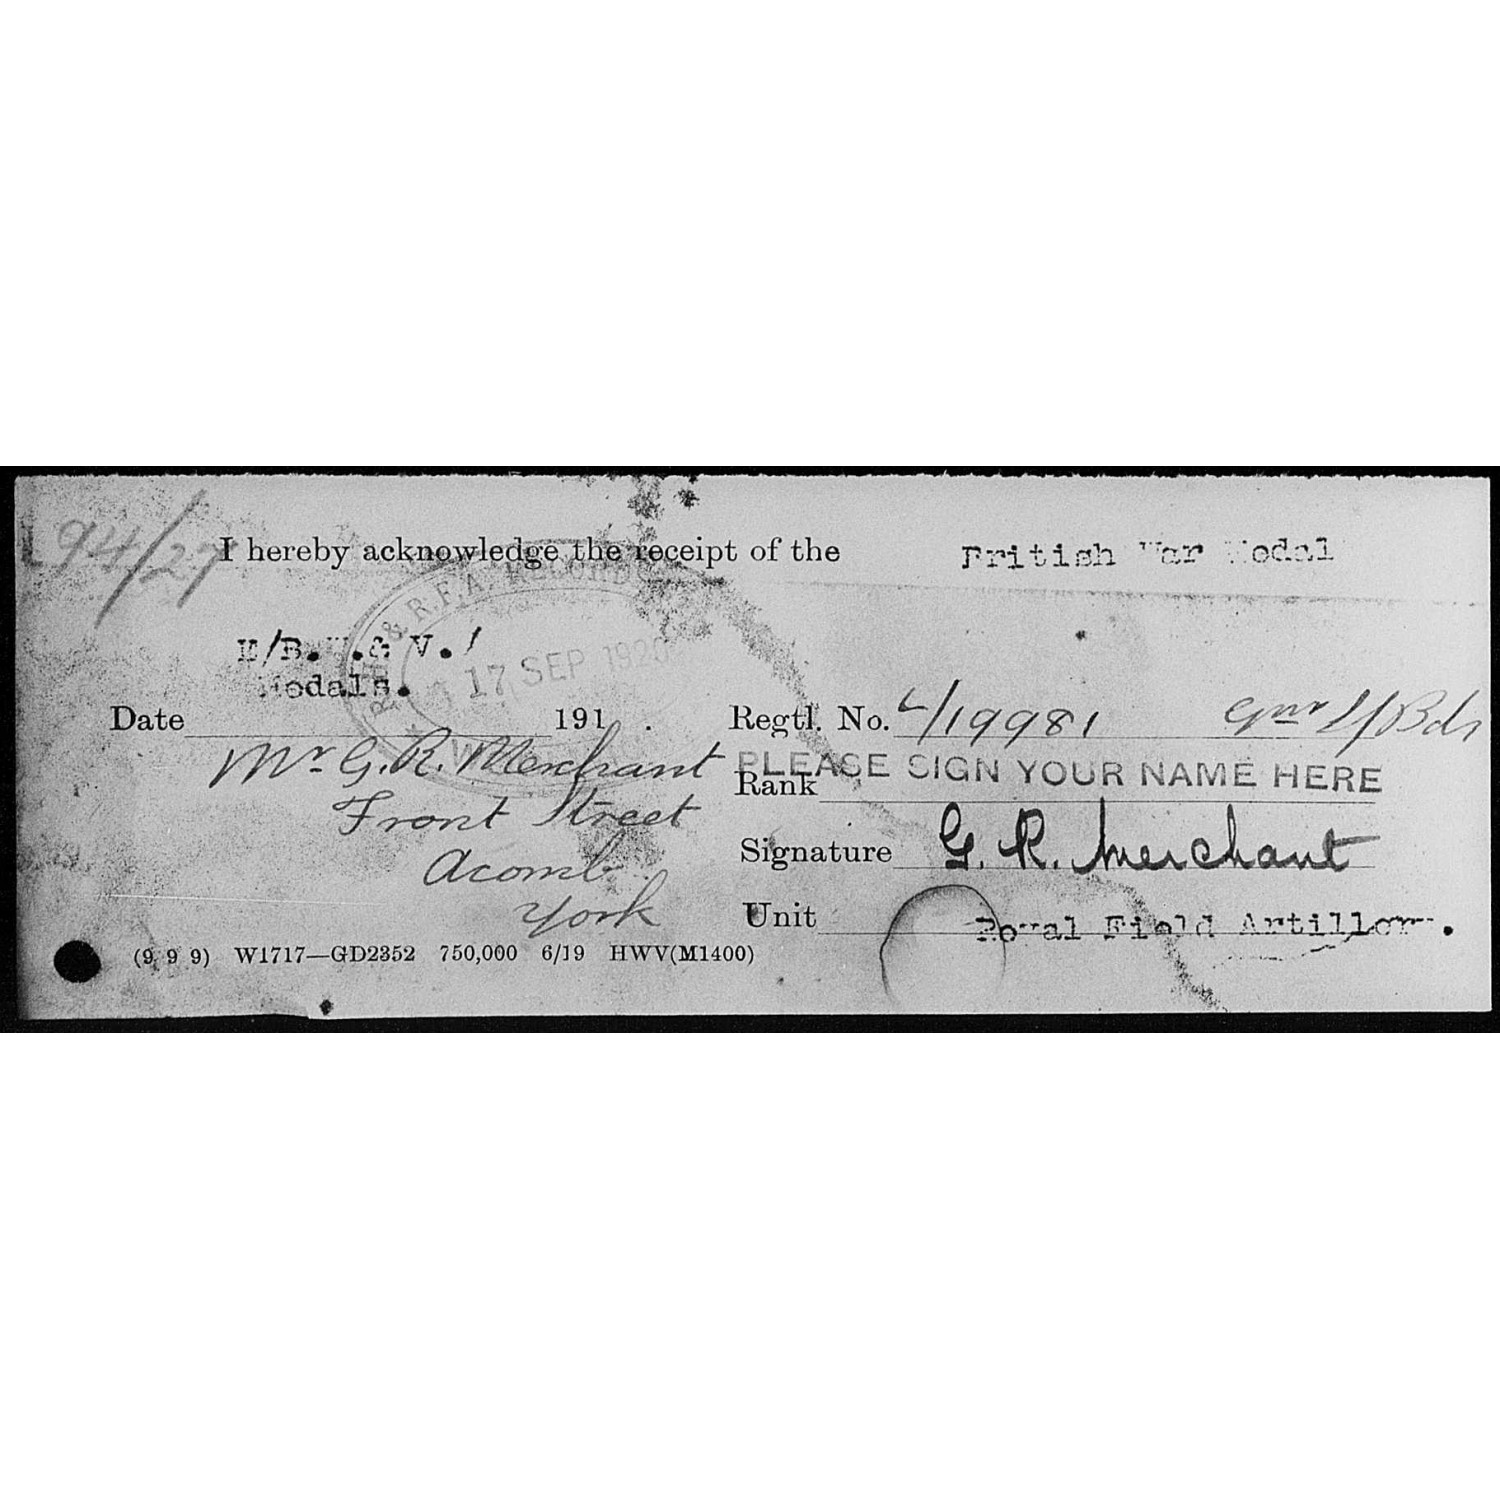 94/27
I hereby acknowledge the receipt of the British War Medal
R.H. & R.F.A. RECORDS
17 SEP 1920
M/B.W.& V./
Medals.
Date 191 .
Mr G. R. Merchant
Front Street
Acomb.
York
Regtl. No. L/19981 Gnr
PLEASE SIGN YOUR NAME HERE
Rank
Signature G. R. Merchant
Unit Royal Field Artillery.
(9 9 9) W1717—GD2352 750,000 6/19 HWV(M1400)